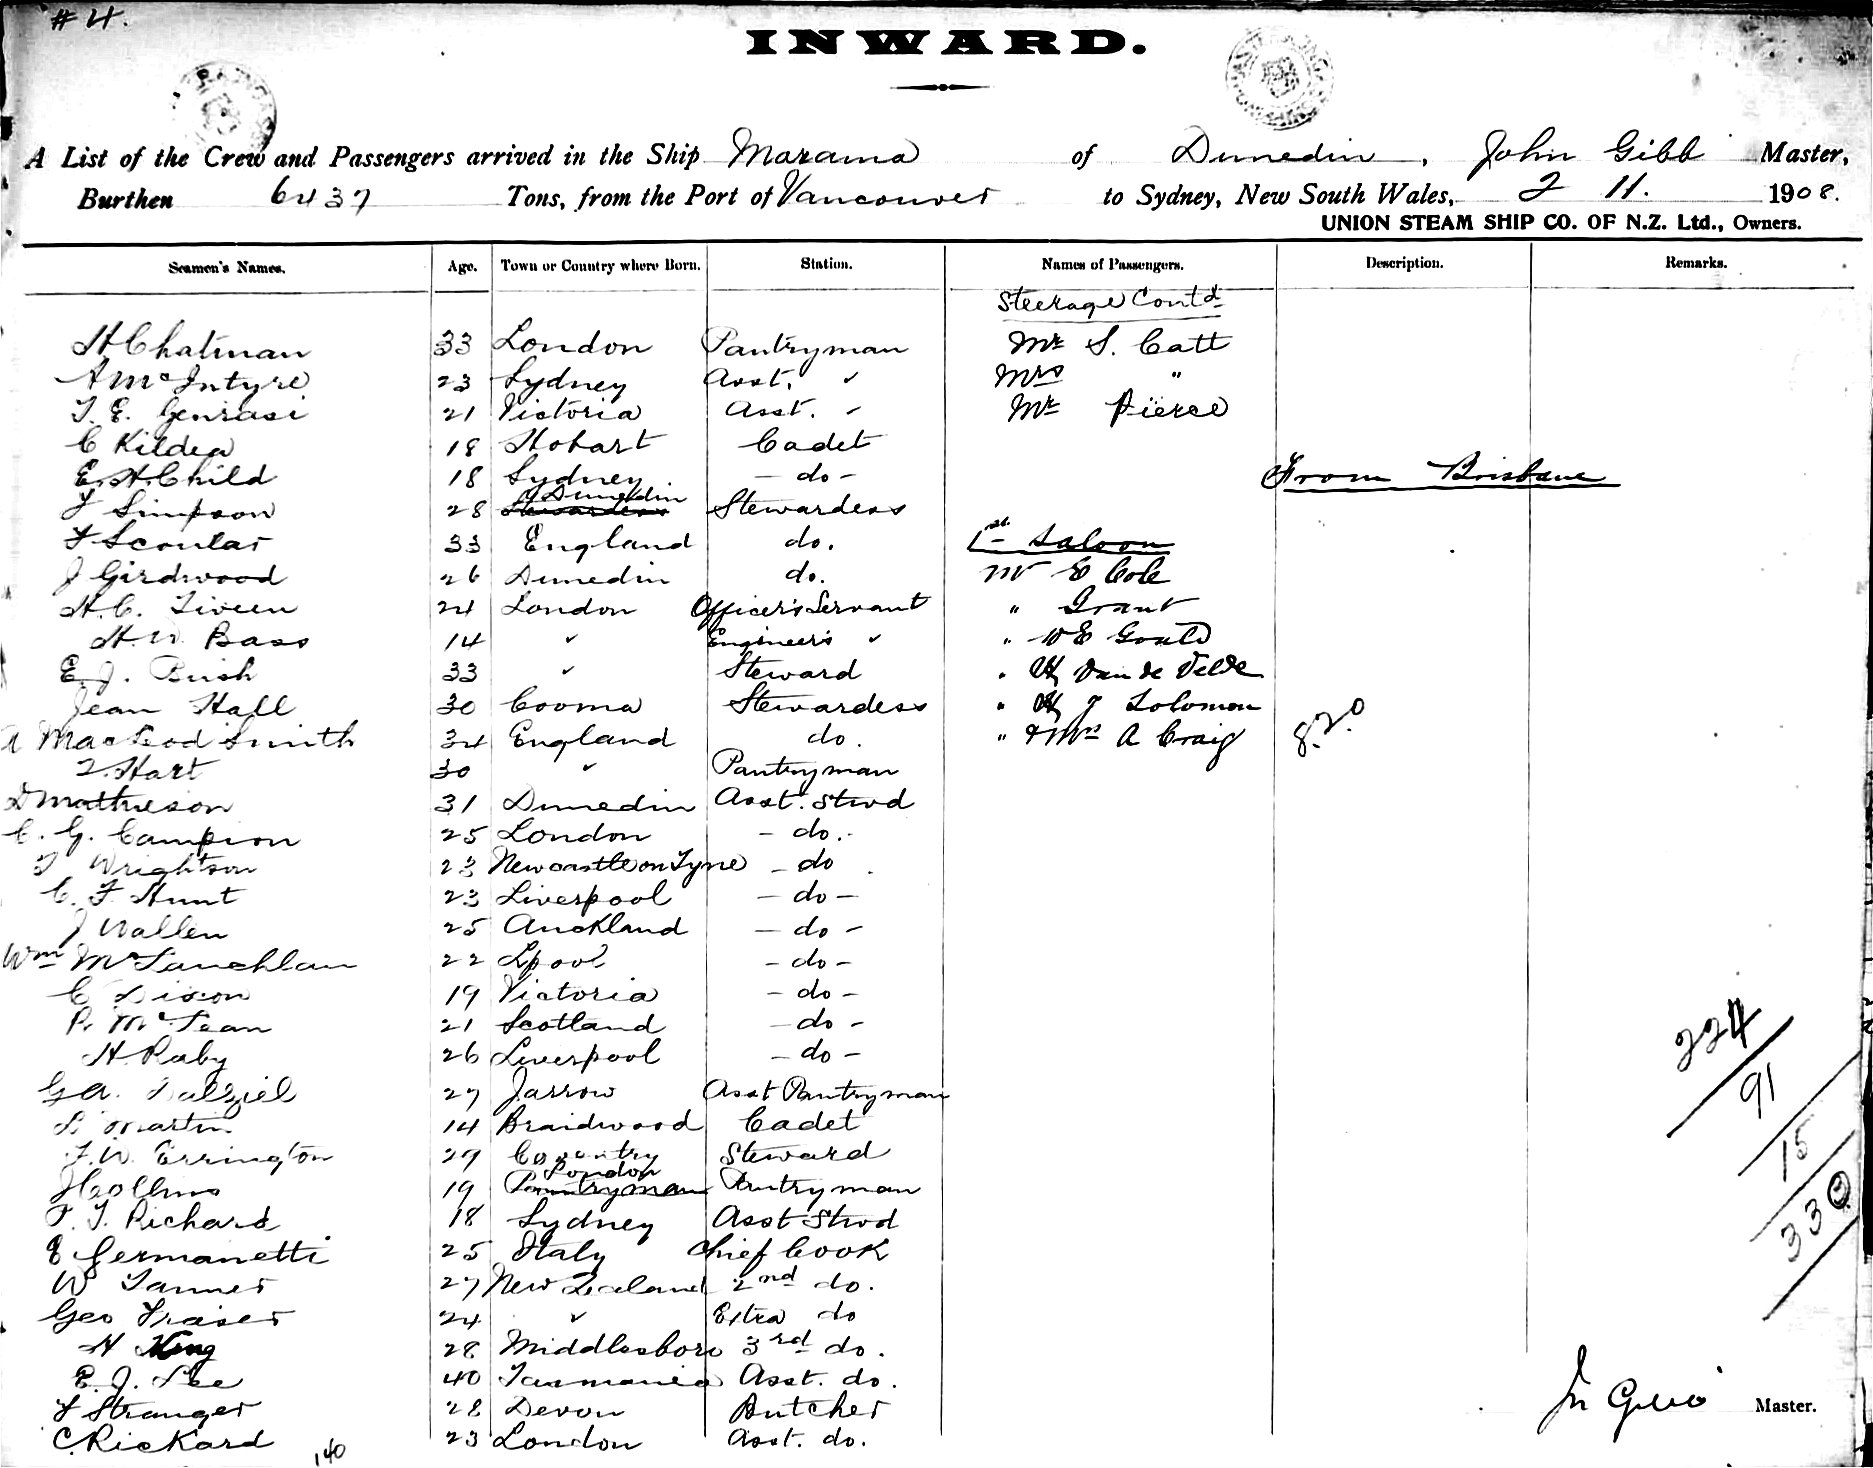 #4.
INWARD.
A List of the Crew and Passengers arrived in the Ship Marama of Dunedin, John Gibb Master,
Burthen 6437 Tons, from the Port of Vancouver to Sydney, New South Wales, 2 11. 1908.
UNION STEAM SHIP CO. OF N.Z. Ltd., Owners.
Seamen's Names. Age. Town or Country where Born. Station. Names of Passengers. Description. Remarks.
Steerage Contd
H Chatman 33 London Pantryman Mr S. Catt
A McIntyre 23 Sydney Asst. " Mrs "
T. E. Genrasi 21 Victoria Asst. " Mr Pierce
C Kildea 18 Hobart Cadet
E. H. Child 18 Sydney - do - From Brisbane
F Simpson 28 Dunedin Stewardess
F Scoular 33 England do. 1st Saloon
J Girdwood 26 Dunedin do. Mr E Cole
H. C. Tiveen 24 London Officer's Servant " Grant
H. W. Bass 14 " Engineer's " " W E Gould
E. J. Bush 33 " Steward " H Van de Velde
Jean Hall 30 Cooma Stewardess " H J Solomon
A MacLeod Smith 34 England do. " & Mrs A Craig 8.2.0
T. Hart 30 " Pantryman
D Mathieson 31 Dunedin Asst. Stwd
C. G. Campion 25 London - do. -
T Wrightson 23 Newcastle on Tyne - do
C. F. Hunt 23 Liverpool - do -
J Wallen 25 Auckland - do -
Wm McLauchlan 22 Lpool - do -
C Dixon 19 Victoria - do -
P. McLean 21 Scotland - do -
H. Raby 26 Liverpool - do -
G A. Dalziel 27 Jarrow Asst Pantryman
S. Martin 14 Braidwood Cadet
F. W. Errington 27 Coventry Steward
J Collins 19 London Pantryman
F. T. Richard 18 Sydney Asst Stwd
E Germanetti 25 Italy Chief Cook
W Tanner 27 New Zealand 2nd do.
Geo Fraser 24 " Extra do
H King 28 Middlesboro 3rd do.
E. J. Lee 40 Tasmania Asst. do.
F Stranger 28 Devon Butcher
C. Rickard 23 London Asst. do.
140
224
91
15
330
Jn Gibb Master.